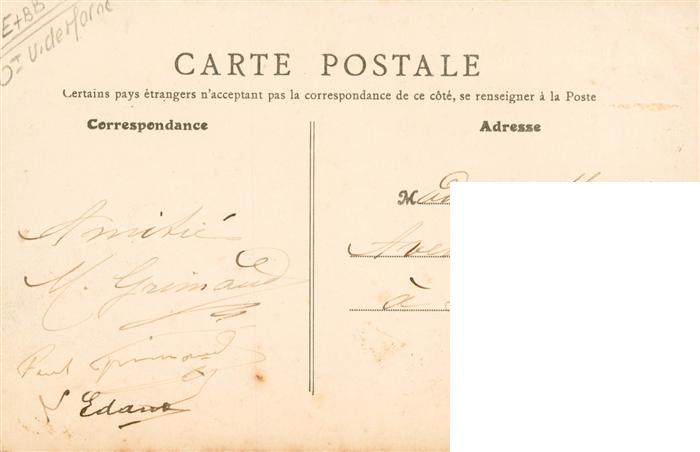 E+BB
CARTE POSTALE
Certains pays étrangers n'acceptant pas la correspondance de ce côté, se renseigner à la Poste
Correspondance
Adresse
Amitié
M. Grimaud
Paul Grimaud
Edans
M
Ave
à